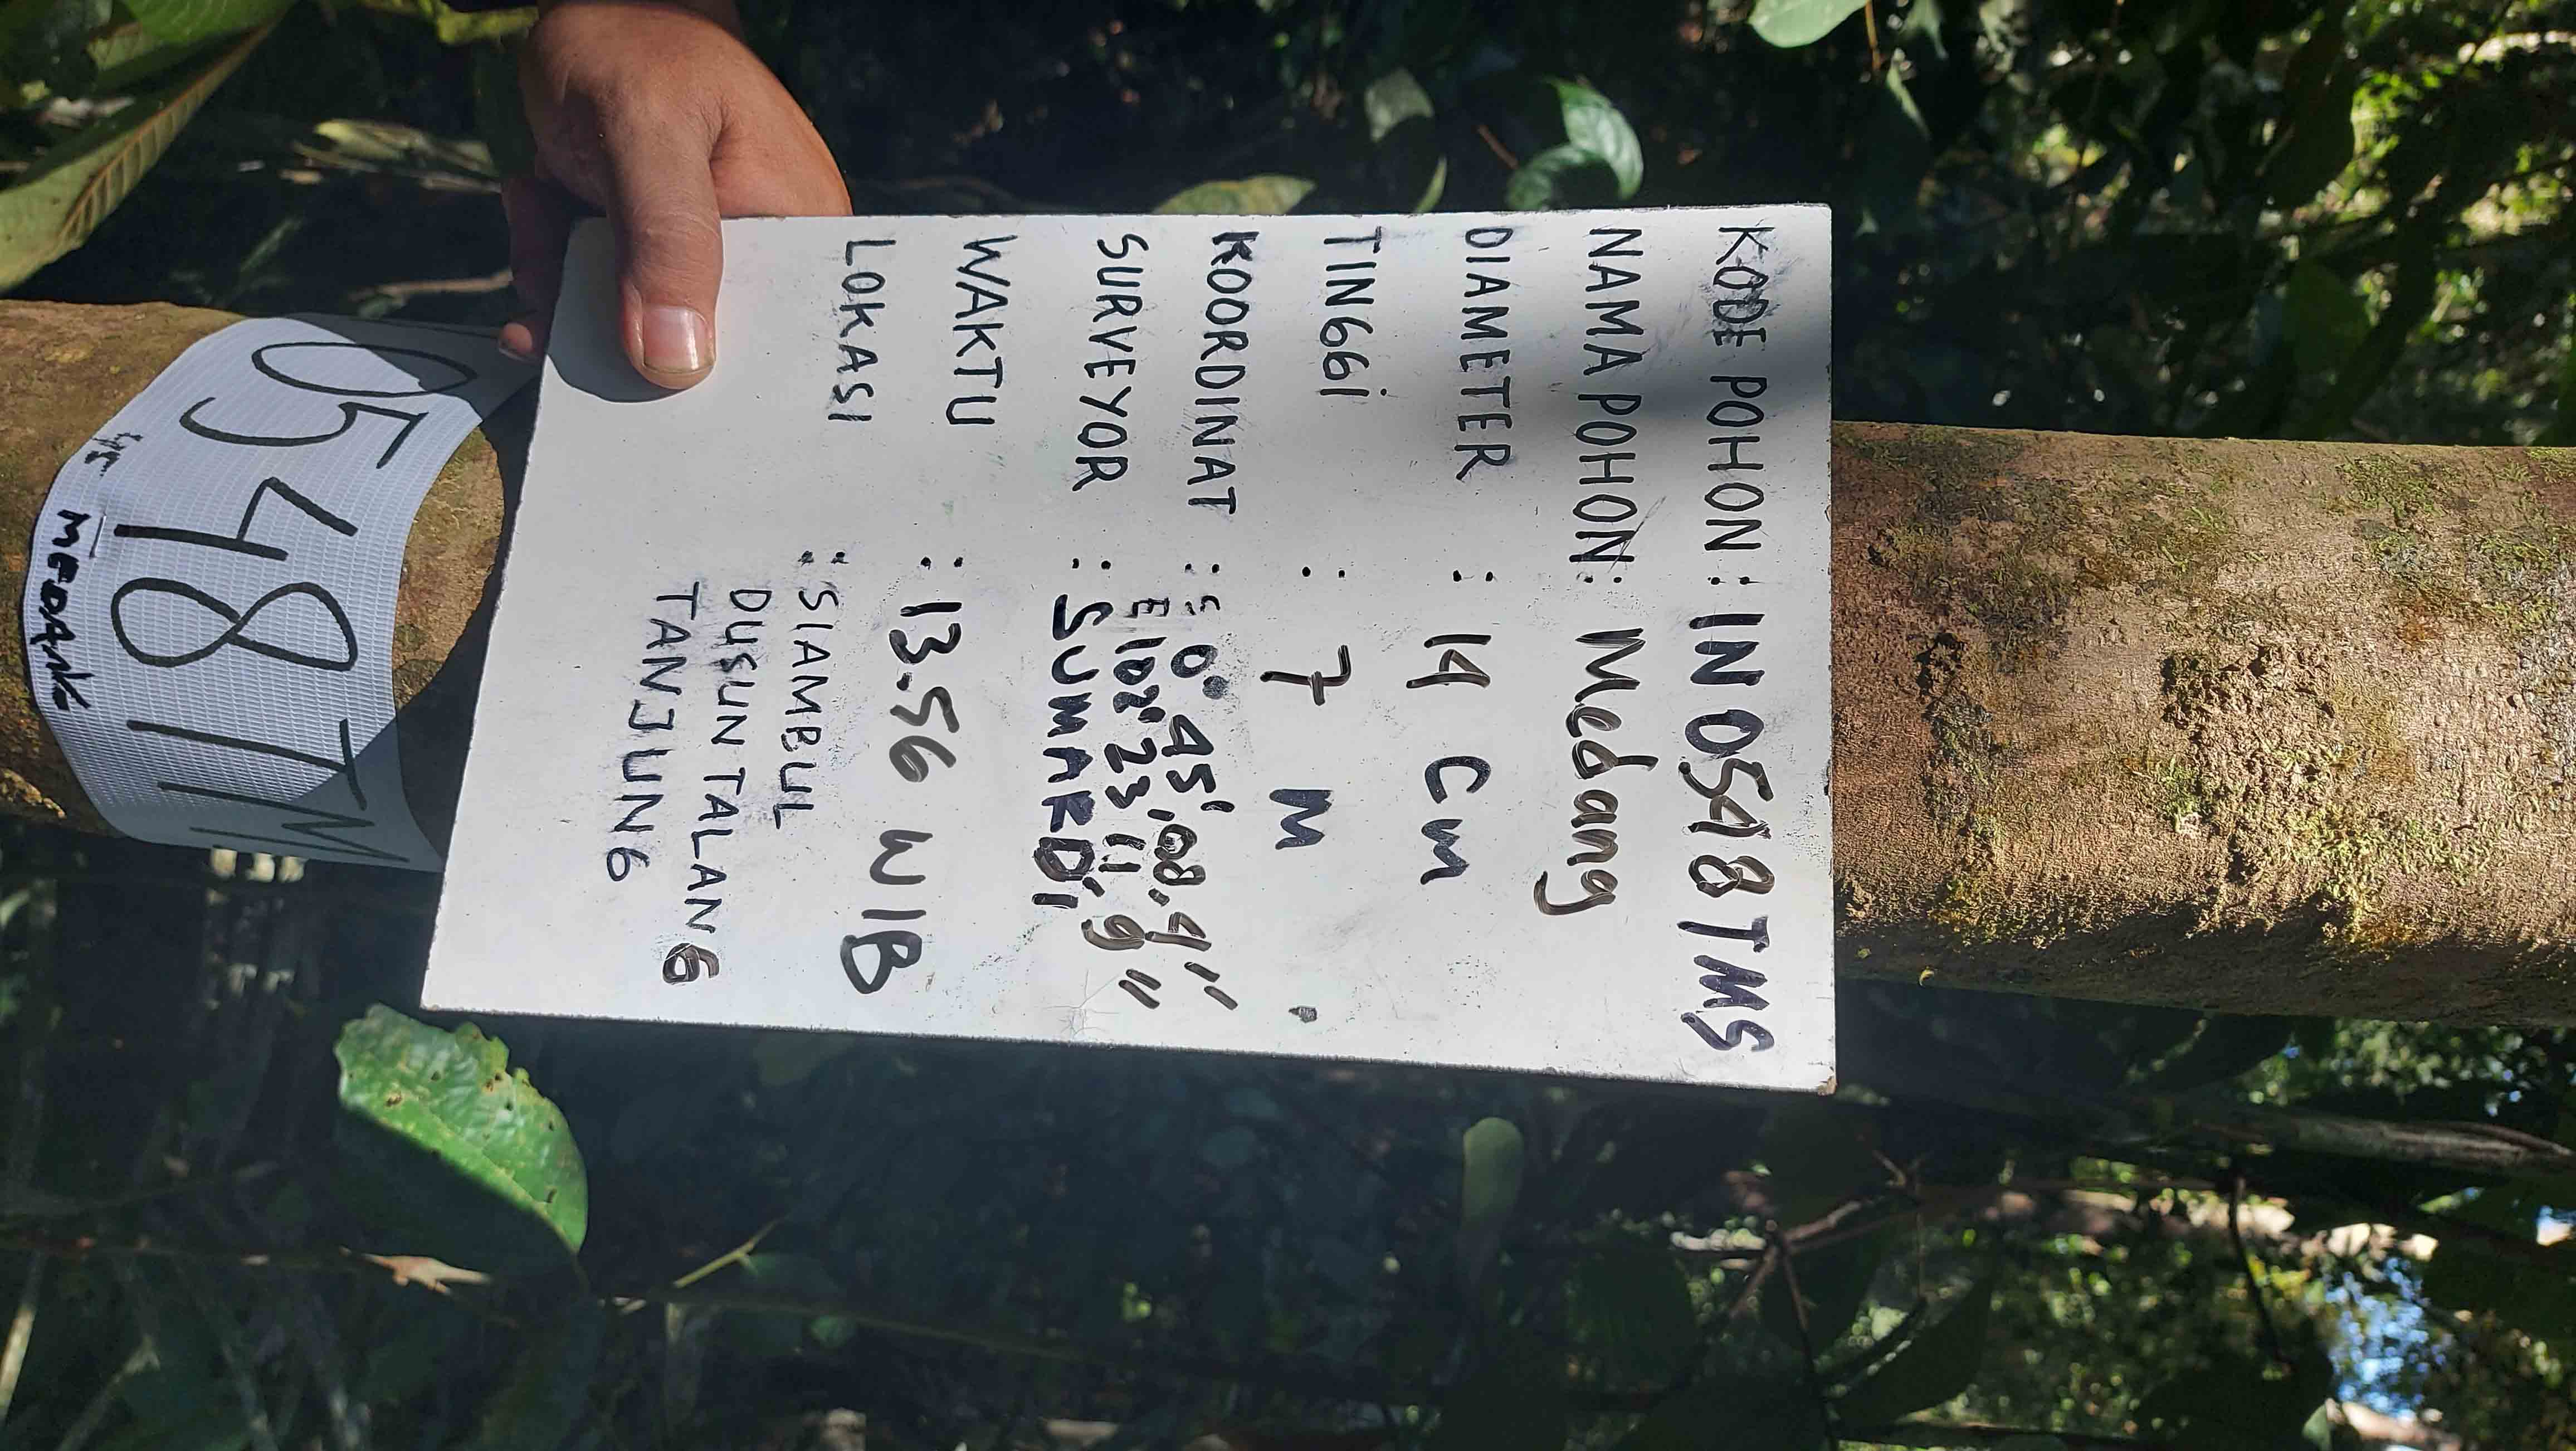 KODE POHON : IN 0548 TMS
NAMA POHON : Medang
DIAMETER : 14 Cm
TINGGi : 7 M
KOORDINAT : S 0° 45' 08.4"
E 102° 23' 11.9"
SURVEYOR : SUMARDi
WAKTU : 13.56 WIB
LOKASI : SIAMBUL
DUSUN TALANG
TANJUNG
0548 TM
MEDANG